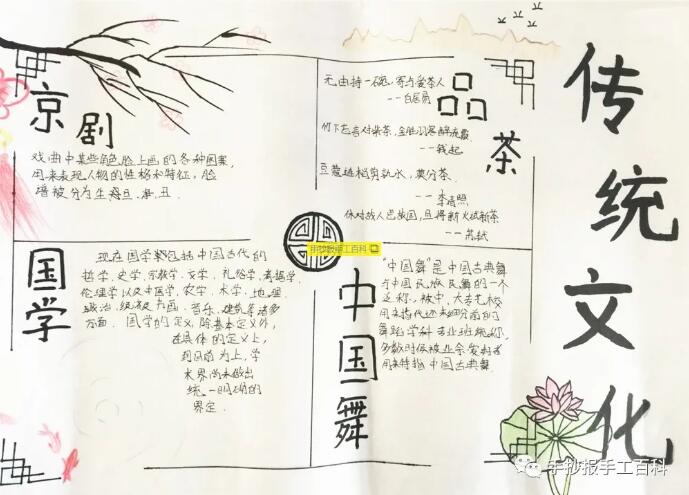 传统文化
京剧
戏曲中某些角色脸上画的各种图案,
用来表现人物的性格和特征,脸
谱被分为生 旦、净、丑.
茶
无由持一碗,寄与爱茶人
--白居易
竹下忘言对紫茶,全胜羽客醉流霞
--钱起
豆蔻连梢煎熟水,莫分茶.
--李清照
休对故人思故国,且将新火试新茶
--苏轼
国学
现在国学 包括中国古代的
哲学、史学、宗教学、文学、礼俗学、考据学、
伦理学以及中医学、农学、术学、地理、
政治、经济及书画、音乐、建筑等诸多
方面. 国学的定义,除基本定义外,
在具体的定义上,
到目前为止,学
术界尚未做出
统一明确的
界定.
中国舞
"中国舞"是中国古典舞
中国民族民舞的一个
泛称,被中、大专艺校
用来替代还未细分前的
舞蹈学科专业班统称,
多数时候被业余爱好者
用来特指中国古典舞.
手抄报手工百科
手抄报手工百科